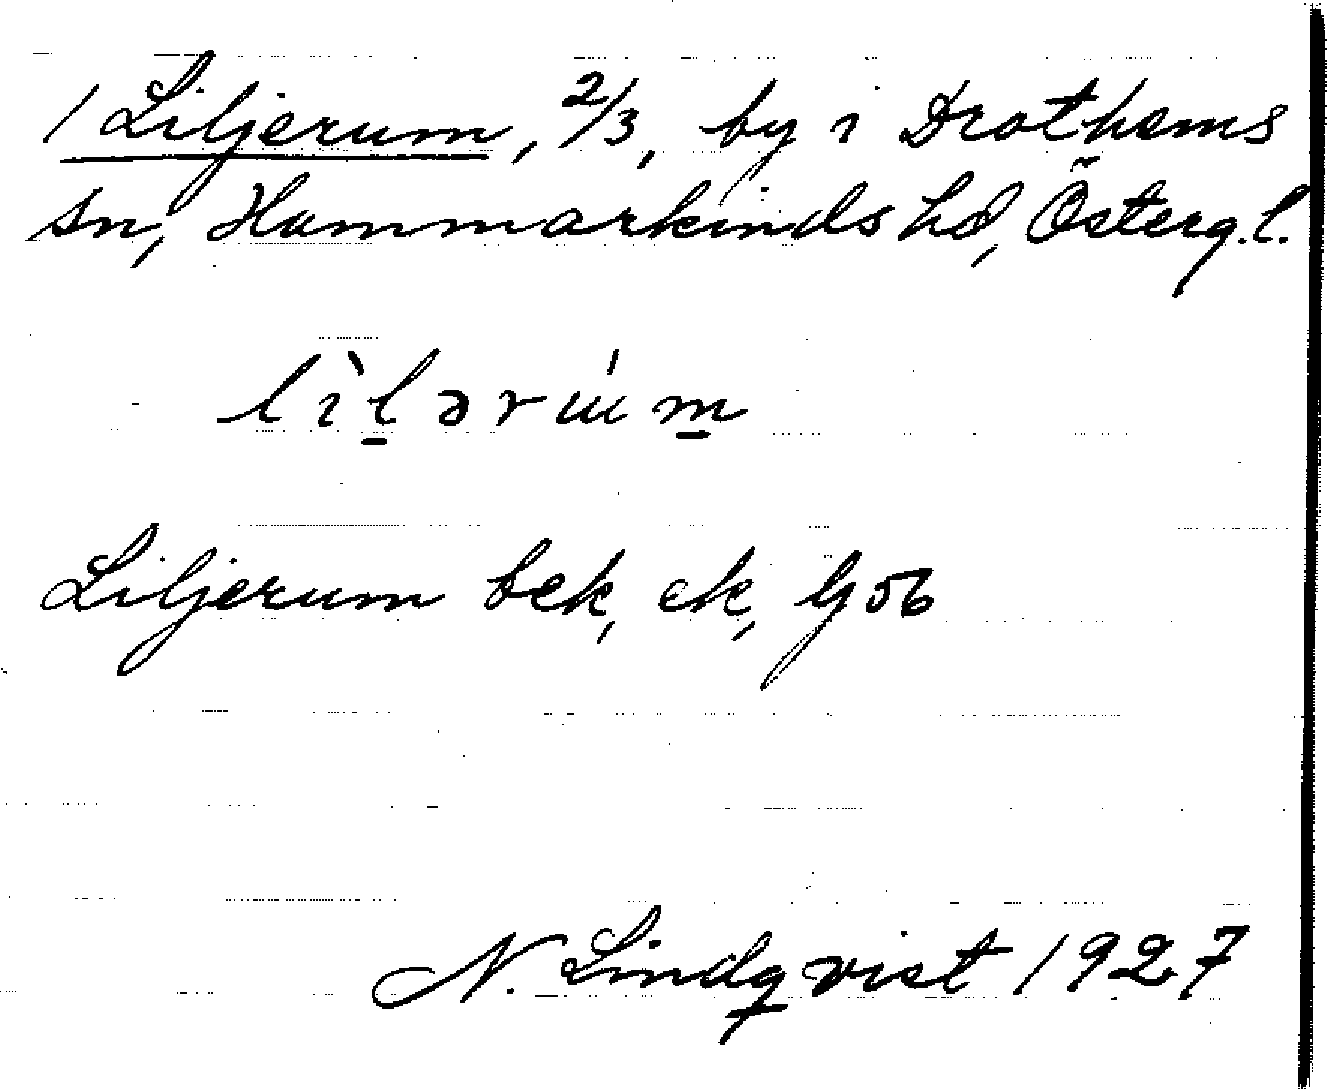 1 Liljerum, 2/3, by i Drothems
sn, Hammarkinds hd, Österg.l.
lìlərúm
Liljerum bek, ek, Gj 56
N. Lindqvist 1927